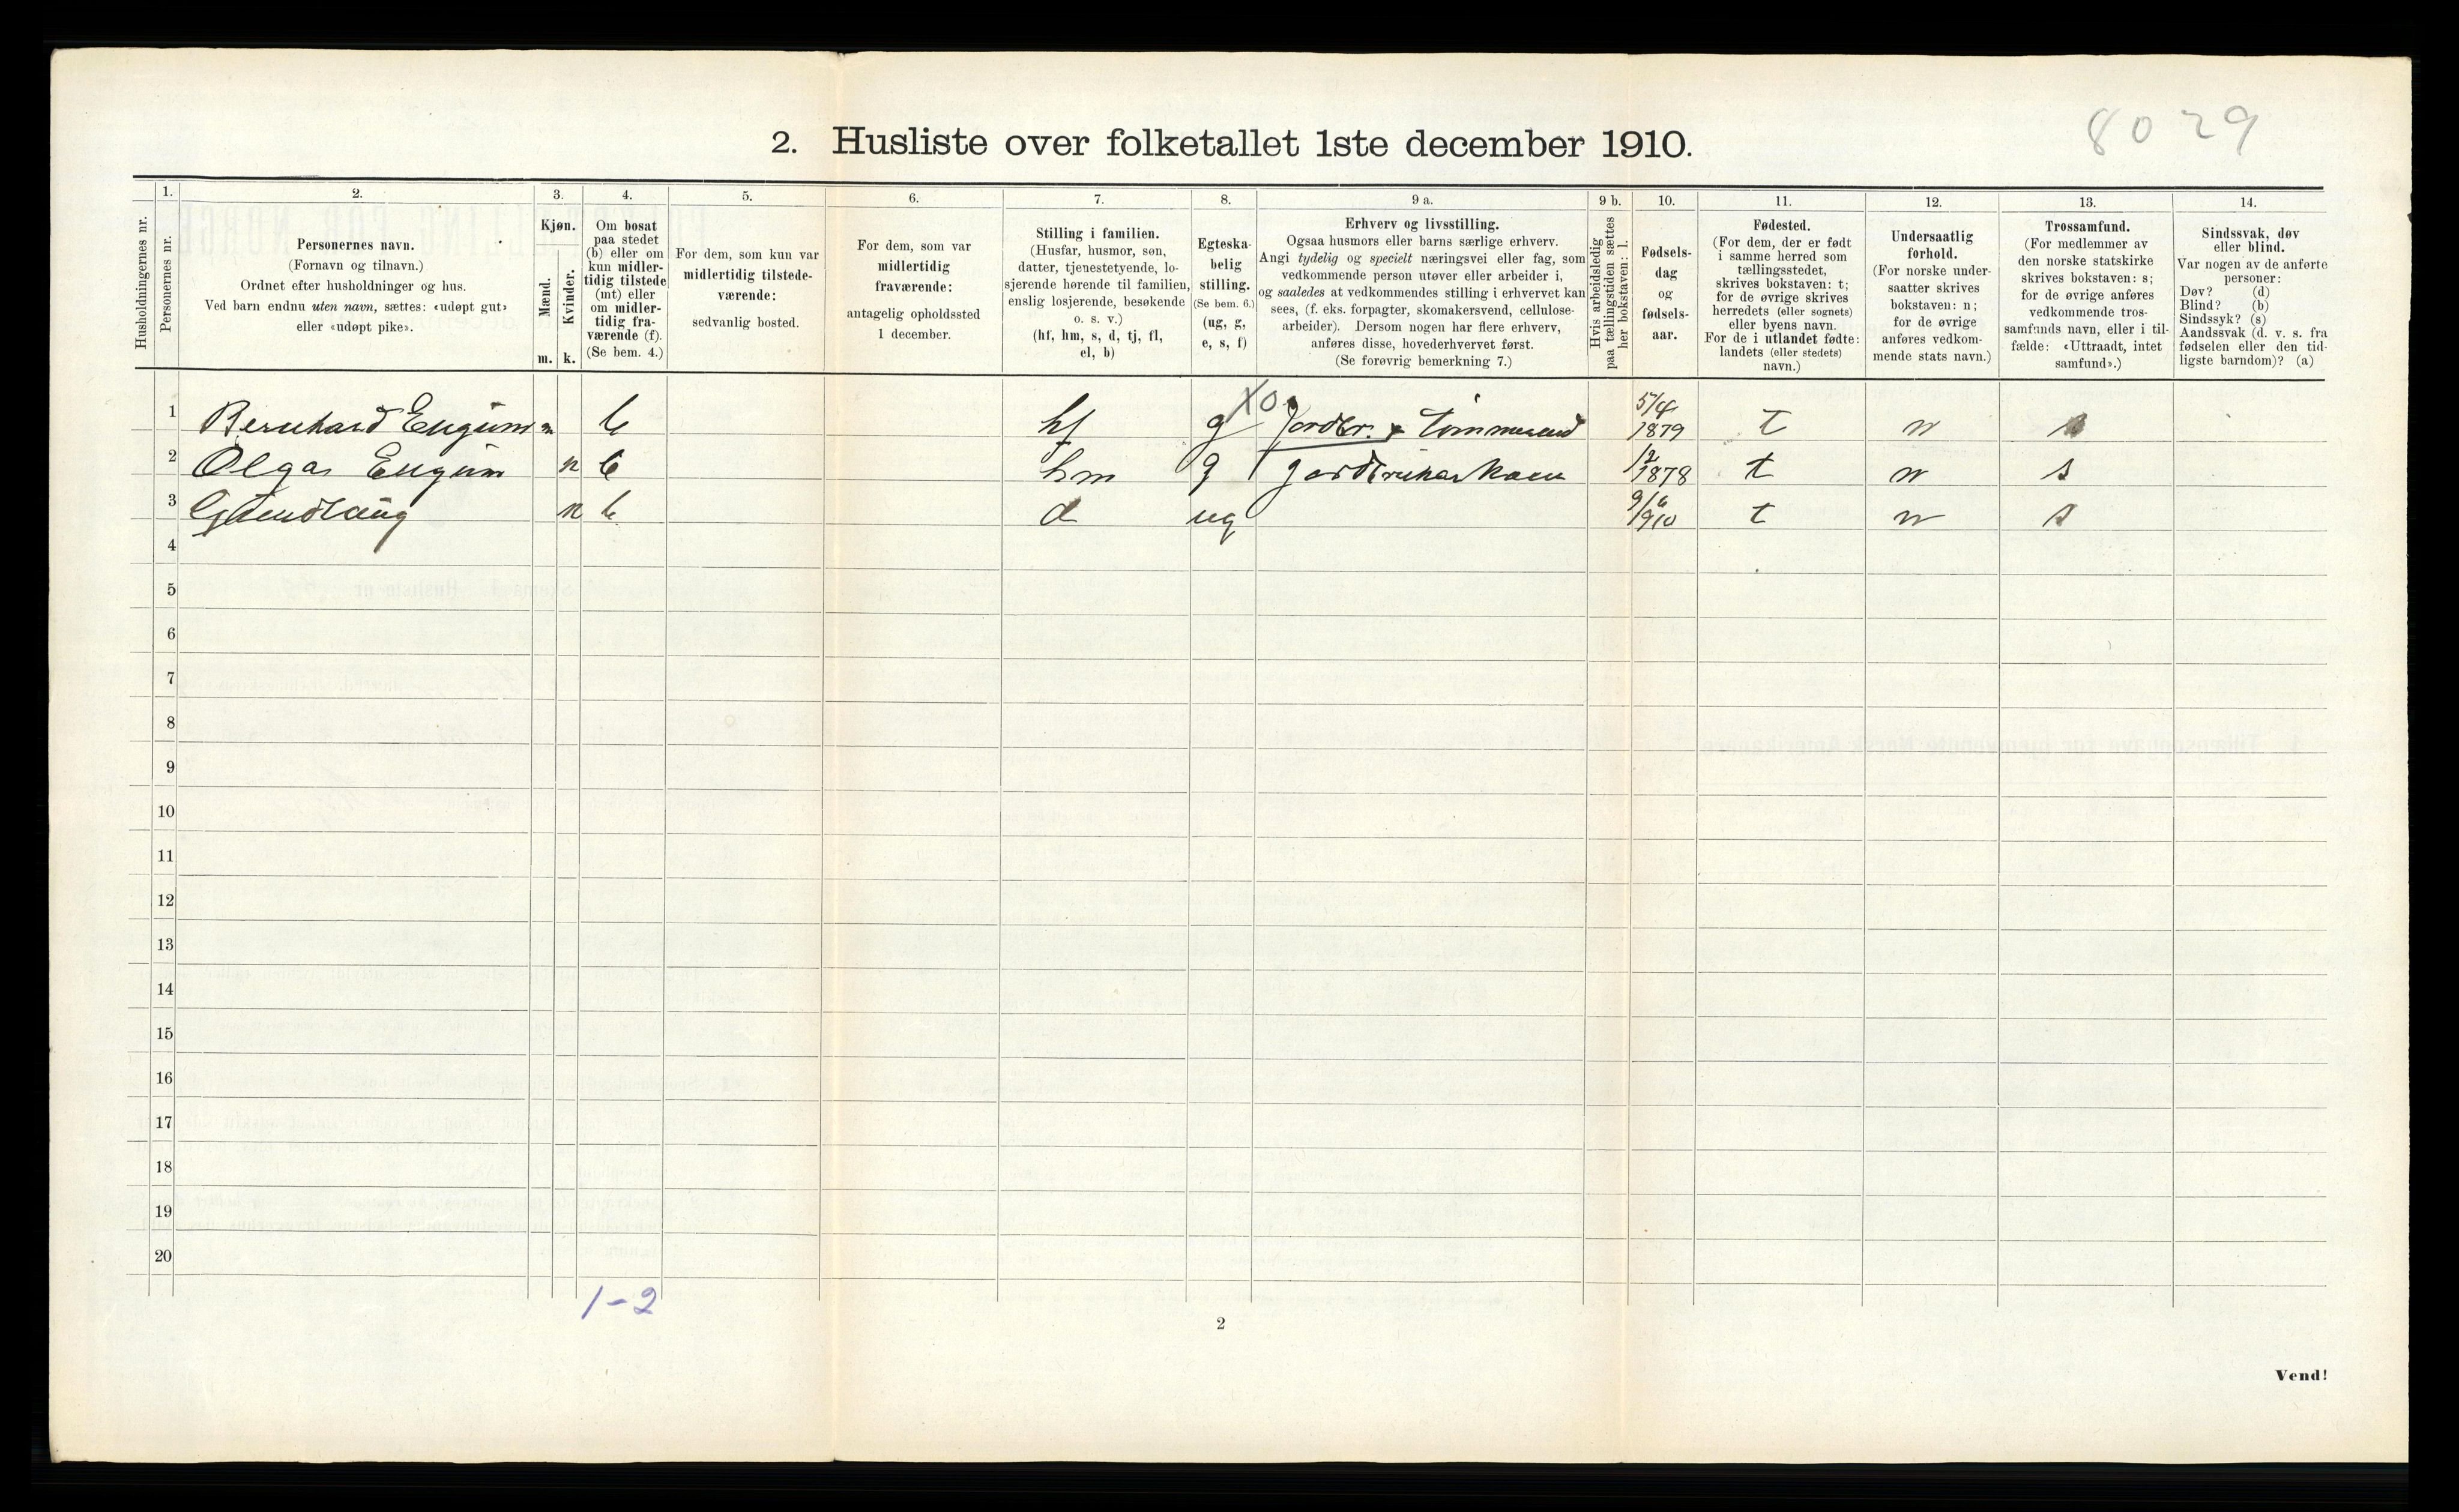 8029
2. Husliste over folketallet 1ste december 1910.
Husholdningernes nr.
1.
Personernes nr.
2.
Personernes navn.
(Fornavn og tilnavn.)
Ordnet efter husholdninger og hus.
Ved barn endnu uten navn, sættes: «udøpt gut»
eller «udøpt pike».
3.
Kjøn.
Mænd.
m.
Kvinder.
k.
4.
Om bosat
paa stedet
(b) eller om
kun midler-
tidig tilstede
(mt) eller
om midler-
tidig fra-
værende (f).
(Se bem. 4.)
5.
For dem, som kun var
midlertidig tilstede-
værende:
sedvanlig bosted.
6.
For dem, som var
midlertidig
fraværende:
antagelig opholdssted
1 december.
7.
Stilling i familien.
(Husfar, husmor, søn,
datter, tjenestetyende, lo-
sjerende hørende til familien,
enslig losjerende, besøkende
o. s. v.)
(hf, hm, s, d, tj, fl,
el, b)
8.
Egteska-
belig
stilling.
(Se bem. 6.)
(ug, g,
e, s, f)
9 a.
Erhverv og livsstilling.
Ogsaa husmors eller barns særlige erhverv.
Angi tydelig og specielt næringsvei eller fag, som
vedkommende person utøver eller arbeider i,
og saaledes at vedkommendes stilling i erhvervet kan
sees, (f. eks. forpagter, skomakersvend, cellulose-
arbeider). Dersom nogen har flere erhverv,
anføres disse, hovederhvervet først.
(Se forøvrig bemerkning 7.)
9 b.
Hvis arbeidsledig
paa tællingstiden sættes
her bokstaven: l.
10.
Fødsels-
dag
og
fødsels-
aar.
11.
Fødested.
(For dem, der er født
i samme herred som
tællingsstedet,
skrives bokstaven: t;
for de øvrige skrives
herredets (eller sognets)
eller byens navn.
For de i utlandet fødte:
landets (eller stedets)
navn.)
12.
Undersaatlig
forhold.
(For norske under-
saatter skrives
bokstaven: n;
for de øvrige
anføres vedkom-
mende stats navn.)
13.
Trossamfund.
(For medlemmer av
den norske statskirke
skrives bokstaven: s;
for de øvrige anføres
vedkommende tros-
samfunds navn, eller i til-
fælde: «Uttraadt, intet
samfund».)
14.
Sindssvak, døv
eller blind.
Var nogen av de anførte
personer:
Døv? (d)
Blind? (b)
Sindssyk? (s)
Aandssvak (d. v. s. fra
fødselen eller den tid-
ligste barndom)? (a)
X0
1 Bernhard Engum m b hf g Jordbr. 5/4 1879 t n s
2 Olga Engum k b hm g 1/2 1878 t n s
3 k b d ug 9/6 1910 t n s
4
5
6
7
8
9
10
11
12
13
14
15
16
17
18
19
20
1-2
2
Vend!